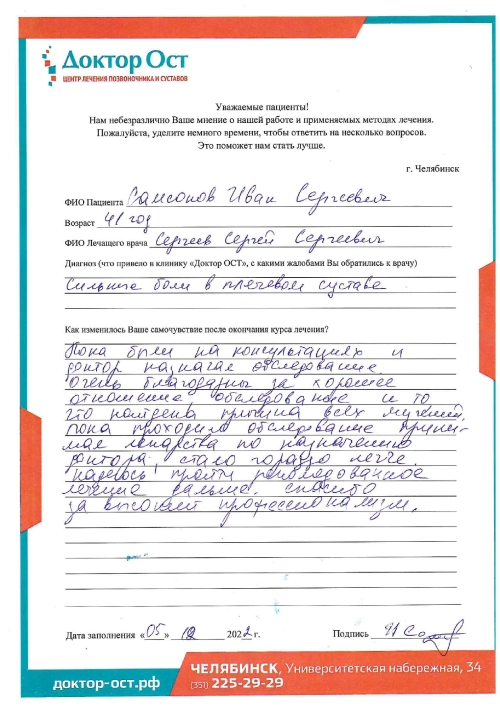 Доктор Ост
ЦЕНТР ЛЕЧЕНИЯ ПОЗВОНОЧНИКА И СУСТАВОВ
Уважаемые пациенты!
Нам небезразлично Ваше мнение о нашей работе и применяемых методах лечения.
Пожалуйста, уделите немного времени, чтобы ответить на несколько вопросов.
Это поможет нам стать лучше.
г. Челябинск
ФИО Пациента Самсонов Иван Сергеевич
Возраст 41 год
ФИО Лечащего врача Сергеев Сергей Сергеевич
Диагноз (что привело в клинику «Доктор ОСТ», с какими жалобами Вы обратились к врачу)
Сильные боли в плечевом суставе
Как изменилось Ваше самочувствие после окончания курса лечения?
Пока были на консультациях и
доктор назначал обследование.
Очень благодарны за хорошее
отношение, обследование и то
что найдена причина всех мучений,
пока проходило обследование прини-
мая лекарства по назначению
доктора стало гораздо легче
надеюсь, пройти рекомендованное
лечение дальше. спасибо
за высокий профессионализм.
Дата заполнения «05» 12 2022 г.
Подпись
ЧЕЛЯБИНСК, Университетская набережная, 34
доктор-ост.рф
(351) 225-29-29